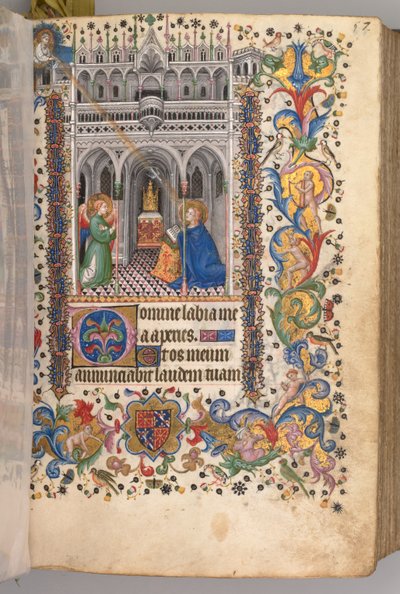 Domine labia me
a aperies.
Et os meum
annunciabit laudem tuam